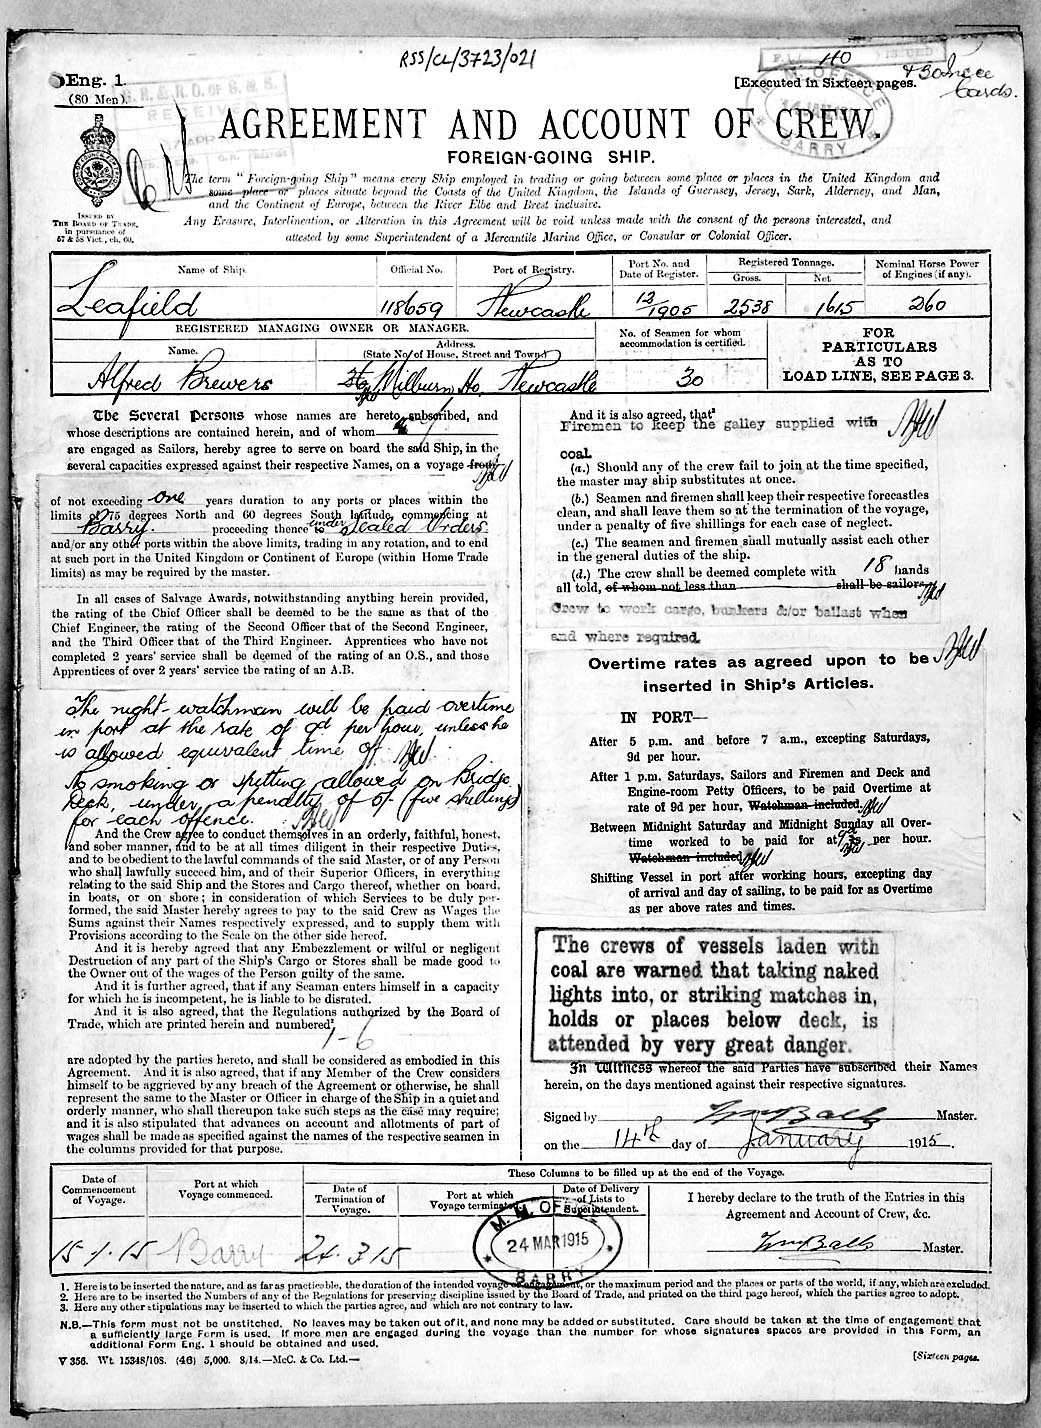 RSS/CL/3723/021
Eng. 1.
(80 Men).
110
[Executed in Sixteen pages.
Cards.
RECEIVED
M. M. OFFICE
BARRY
AGREEMENT AND ACCOUNT OF CREW.
FOREIGN-GOING SHIP.
ISSUED BY
THE BOARD OF TRADE,
in pursuance of
57 & 58 Vict., ch. 60.
The term "Foreign-going Ship" means every Ship employed in trading or going between some place or places in the United Kingdom and
some place or places situate beyond the Coasts of the United Kingdom, the Islands of Guernsey, Jersey, Sark, Alderney, and Man,
and the Continent of Europe, between the River Elbe and Brest inclusive.
Any Erasure, Interlineation, or Alteration in this Agreement will be void unless made with the consent of the persons interested, and
attested by some Superintendent of a Mercantile Marine Office, or Consular or Colonial Officer.
Name of Ship. Official No. Port of Registry. Port No. and Date of Register. Registered Tonnage. Gross. Net Nominal Horse Power of Engines (if any).
Leafield 118659 Newcastle 12/1905 2538 1615 260
REGISTERED MANAGING OWNER OR MANAGER.
Name. Address. (State No. of House, Street and Town)
No. of Seamen for whom accommodation is certified.
Alfred Brewers Milburn Ho, Newcastle 30
FOR
PARTICULARS
AS TO
LOAD LINE, SEE PAGE 3.
The Several Persons whose names are hereto subscribed, and
whose descriptions are contained herein, and of whom
are engaged as Sailors, hereby agree to serve on board the said Ship, in the
several capacities expressed against their respective Names, on a voyage from
of not exceeding one years duration to any ports or places within the
limits of 75 degrees North and 60 degrees South latitude, commencing at
Barry. proceeding thence to under Sealed Orders
and/or any other ports within the above limits, trading in any rotation, and to end
at such port in the United Kingdom or Continent of Europe (within Home Trade
limits) as may be required by the master.
In all cases of Salvage Awards, notwithstanding anything herein provided,
the rating of the Chief Officer shall be deemed to be the same as that of the
Chief Engineer, the rating of the Second Officer that of the Second Engineer,
and the Third Officer that of the Third Engineer. Apprentices who have not
completed 2 years' service shall be deemed of the rating of an O.S., and those
Apprentices of over 2 years' service the rating of an A.B.
The night-watchman will be paid overtime
in port at the rate of 9d per hour, unless he
is allowed equivalent time off
No smoking or spitting allowed on Bridge
Deck, under a penalty of 5/- (five shillings)
for each offence.
And the Crew agree to conduct themselves in an orderly, faithful, honest,
and sober manner, and to be at all times diligent in their respective Duties,
and to be obedient to the lawful commands of the said Master, or of any Person
who shall lawfully succeed him, and of their Superior Officers, in everything
relating to the said Ship and the Stores and Cargo thereof, whether on board,
in boats, or on shore; in consideration of which Services to be duly per-
formed, the said Master hereby agrees to pay to the said Crew as Wages the
Sums against their Names respectively expressed, and to supply them with
Provisions according to the Scale on the other side hereof.
And it is hereby agreed that any Embezzlement or wilful or negligent
Destruction of any part of the Ship's Cargo or Stores shall be made good to
the Owner out of the wages of the Person guilty of the same.
And it is further agreed, that if any Seaman enters himself in a capacity
for which he is incompetent, he is liable to be disrated.
And it is also agreed, that the Regulations authorized by the Board of
Trade, which are printed herein and numbered²
1-6
are adopted by the parties hereto, and shall be considered as embodied in this
Agreement. And it is also agreed, that if any Member of the Crew considers
himself to be aggrieved by any breach of the Agreement or otherwise, he shall
represent the same to the Master or Officer in charge of the Ship in a quiet and
orderly manner, who shall thereupon take such steps as the case may require;
and it is also stipulated that advances on account and allotments of part of
wages shall be made as specified against the names of the respective seamen in
the columns provided for that purpose.
And it is also agreed, that³
Firemen to keep the galley supplied with
coal.
(a.) Should any of the crew fail to join at the time specified,
the master may ship substitutes at once.
(b.) Seamen and firemen shall keep their respective forecastles
clean, and shall leave them so at the termination of the voyage,
under a penalty of five shillings for each case of neglect.
(c.) The seamen and firemen shall mutually assist each other
in the general duties of the ship.
(d.) The crew shall be deemed complete with 18 hands
all told, of whom not less than shall be sailors.
Crew to work cargo, bunkers &/or ballast when
and where required.
Overtime rates as agreed upon to be
inserted in Ship's Articles.
IN PORT—
After 5 p.m. and before 7 a.m., excepting Saturdays,
9d per hour.
After 1 p.m. Saturdays, Sailors and Firemen and Deck and
Engine-room Petty Officers, to be paid Overtime at
rate of 9d per hour, Watchman included.
Between Midnight Saturday and Midnight Sunday all Over-
time worked to be paid for at per hour.
Watchman included
Shifting Vessel in port after working hours, excepting day
of arrival and day of sailing, to be paid for as Overtime
as per above rates and times.
The crews of vessels laden with
coal are warned that taking naked
lights into, or striking matches in,
holds or places below deck, is
attended by very great danger.
In Witness whereof the said Parties have subscribed their Names
herein, on the days mentioned against their respective signatures.
Signed by Wm Balls Master.
on the 14th day of January 1915.
These Columns to be filled up at the end of the Voyage.
Date of Commencement of Voyage. Port at which Voyage commenced. Date of Termination of Voyage. Port at which Voyage terminated. Date of Delivery of Lists to Superintendent.
15.1.15 Barry 24.3.15
M. M. OFFICE
24 MAR 1915
BARRY
I hereby declare to the truth of the Entries in this
Agreement and Account of Crew, &c.
Wm Balls Master.
1. Here is to be inserted the nature, and as far as practicable, the duration of the intended voyage or engagement, or the maximum period and the places or parts of the world, if any, which are excluded.
2. Here are to be inserted the Numbers of any of the Regulations for preserving discipline issued by the Board of Trade, and printed on the third page hereof, which the parties agree to adopt.
3. Here any other stipulations may be inserted to which the parties agree, and which are not contrary to law.
N.B.—This form must not be unstitched. No leaves may be taken out of it, and none may be added or substituted. Care should be taken at the time of engagement that
a sufficiently large Form is used. If more men are engaged during the voyage than the number for whose signatures spaces are provided in this Form, an
additional Form Eng. 1 should be obtained and used.
V 356. Wt. 15348/108. (46) 5,000. 8/14.—McC. & Co. Ltd.—
[Sixteen pages.